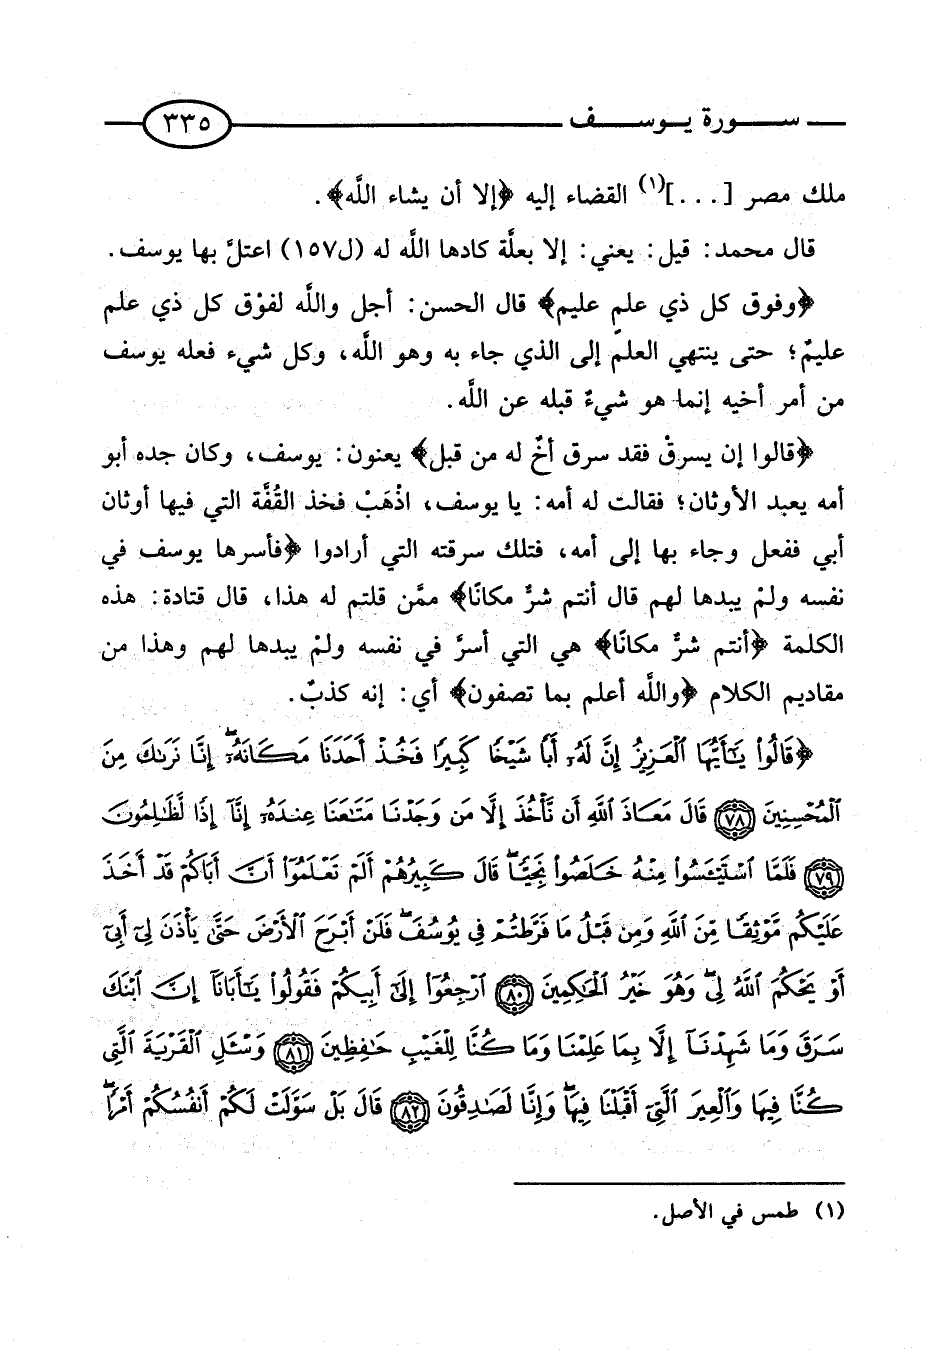 سورة يوسف ٣٣٥
ملك مصر [...](١) القضاء إليه ﴿إلا أن يشاء اللَّه﴾.
قال محمد: قيل: يعني: إلا بعلَّة كادها اللَّه له (ل١٥٧) اعتلَّ بها يوسف.
﴿وفوق كل ذي علم عليم﴾ قال الحسن: أجل واللَّه لفوْق كل ذي علم
عليمٌ؛ حتى ينتهي العلم إلى الذي جاء به وهو اللَّه، وكل شيء فعله يوسف
من أمر أخيه إنما هو شيءٌ قبله عن اللَّه.
﴿قالوا إن يسرقْ فقد سرق أخٌ له من قبل﴾ يعنون: يوسف، وكان جده أبو
أمه يعبد الأوثان؛ فقالت له أمه: يا يوسف، اذْهَبْ فخذ القُفَّة التي فيها أوثان
أبي ففعل وجاء بها إلى أمه، فتلك سرقته التي أرادوا ﴿فأسرها يوسف في
نفسه ولمْ يبدها لهم قال أنتم شرٌّ مكانًا﴾ ممَّن قلتم له هذا، قال قتادة: هذه
الكلمة ﴿أنتم شرٌّ مكانًا﴾ هي التي أسرَّ في نفسه ولمْ يبدها لهم وهذا من
مقاديم الكلام ﴿واللَّه أعلم بما تصفون﴾ أي: إنه كذبٌ.
﴿قَالُواْ يَٰٓأَيُّهَا ٱلْعَزِيزُ إِنَّ لَهُۥٓ أَبًا شَيْخًا كَبِيرًا فَخُذْ أَحَدَنَا مَكَانَهُۥٓ ۖ إِنَّا نَرَىٰكَ مِنَ
ٱلْمُحْسِنِينَ ٧٨ قَالَ مَعَاذَ ٱللَّهِ أَن نَّأْخُذَ إِلَّا مَن وَجَدْنَا مَتَٰعَنَا عِندَهُۥٓ إِنَّآ إِذًا لَّظَٰلِمُونَ
٧٩ فَلَمَّا ٱسْتَيْـَٔسُواْ مِنْهُ خَلَصُواْ نَجِيًّا ۖ قَالَ كَبِيرُهُمْ أَلَمْ تَعْلَمُوٓاْ أَنَّ أَبَاكُمْ قَدْ أَخَذَ
عَلَيْكُم مَّوْثِقًا مِّنَ ٱللَّهِ وَمِن قَبْلُ مَا فَرَّطتُمْ فِى يُوسُفَ ۖ فَلَنْ أَبْرَحَ ٱلْأَرْضَ حَتَّىٰ يَأْذَنَ لِىٓ أَبِىٓ
أَوْ يَحْكُمَ ٱللَّهُ لِى ۖ وَهُوَ خَيْرُ ٱلْحَٰكِمِينَ ٨٠ ٱرْجِعُوٓاْ إِلَىٰٓ أَبِيكُمْ فَقُولُواْ يَٰٓأَبَانَآ إِنَّ ٱبْنَكَ
سَرَقَ وَمَا شَهِدْنَآ إِلَّا بِمَا عَلِمْنَا وَمَا كُنَّا لِلْغَيْبِ حَٰفِظِينَ ٨١ وَسْـَٔلِ ٱلْقَرْيَةَ ٱلَّتِى
كُنَّا فِيهَا وَٱلْعِيرَ ٱلَّتِىٓ أَقْبَلْنَا فِيهَا ۖ وَإِنَّا لَصَٰدِقُونَ ٨٢ قَالَ بَلْ سَوَّلَتْ لَكُمْ أَنفُسُكُمْ أَمْرًا ۖ
(١) طمس في الأصل.